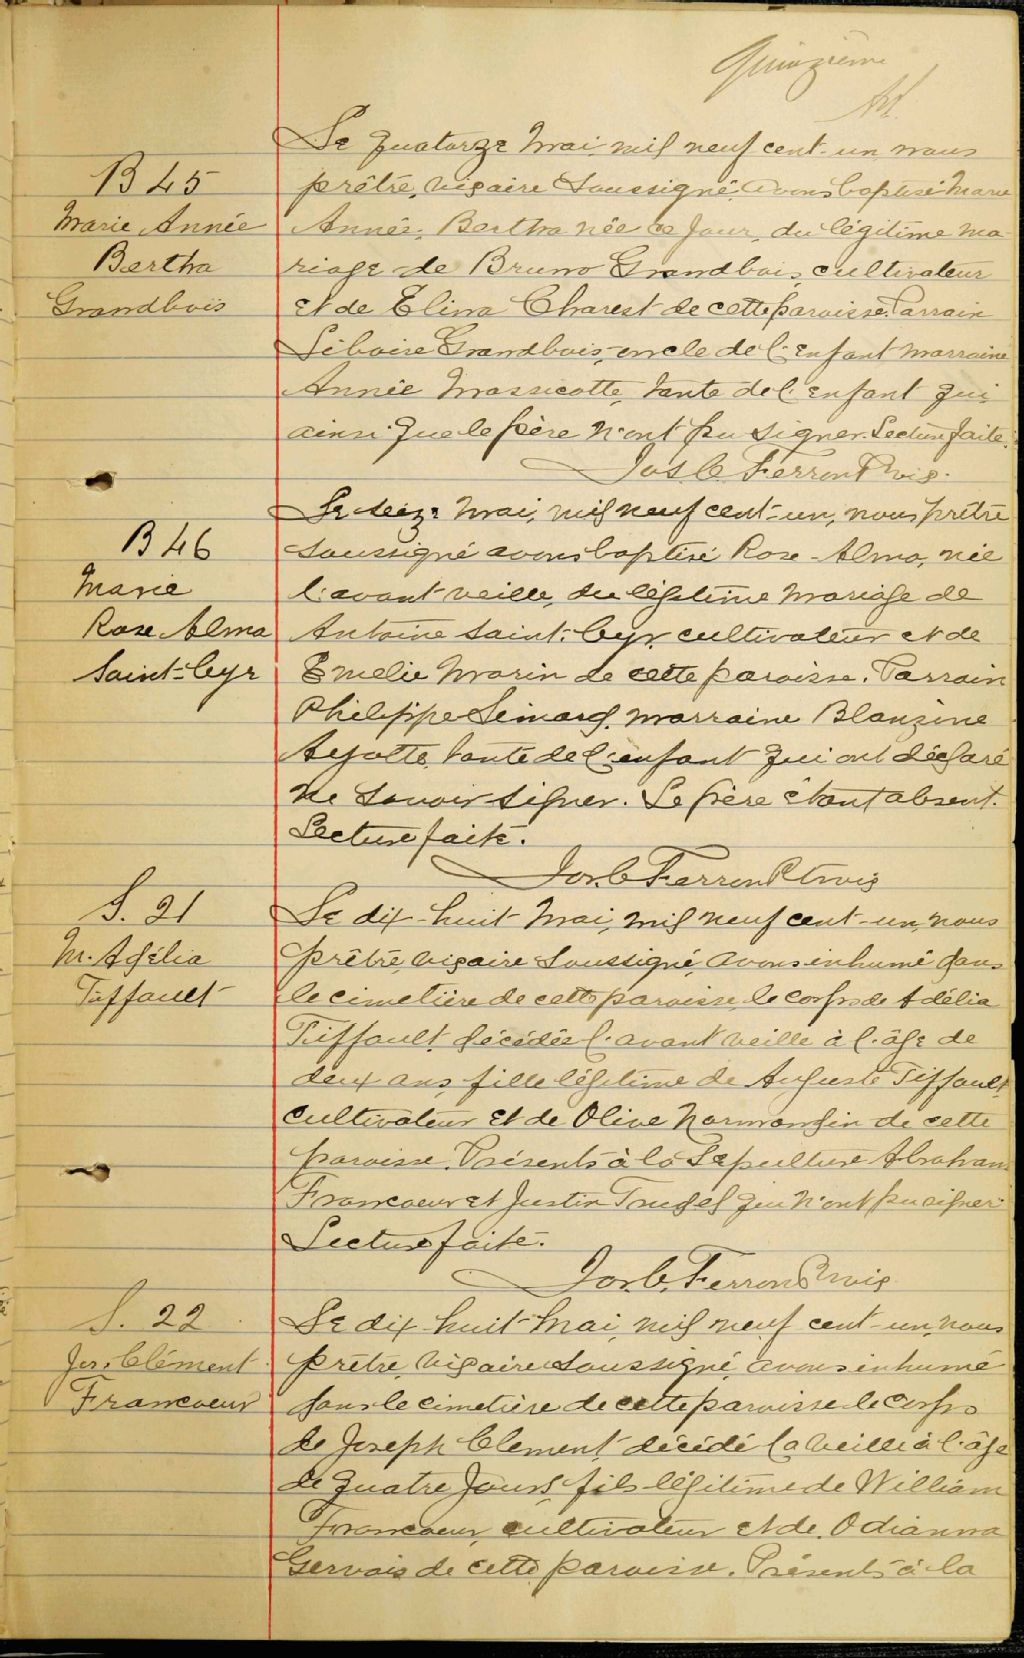 Quinzième
Le quatorze mai mil neuf cent-un nous
B 45
prêtre, vicaire soussigné, avons baptisé Marie
Marie Année
Année, Bertha née ce jour, du légitime ma-
Bertha
riage de Bruno Grandbois, cultivateur
Grandbois
et de Elina Charest de cette paroisse. Parrain
Liboire Grandbois, oncle de l'enfant marraine
Année Massicotte, tante de l'enfant qui,
ainsi que le père n'ont pu signer. Lecture faite.
Jos. C. Ferron Ptre vic.
Le seize mai, mil neuf cent-un, nous prêtre
B 46
soussigné avons baptisé Rose-Alma, née
Marie
l'avant veille, du légitime mariage de
Rose Alma
Antoine Saint-Cyr, cultivateur et de
Saint-Cyr
Emelie Morin de cette paroisse. Parrain
Philippe Simard, marraine Blanzine
Ayotte, tante de l'enfant qui ont déclaré
ne savoir signer. Le père étant absent.
Lecture faite.
Jos. C. Ferron Ptre vic
S. 21
Le dix-huit mai, mil neuf cent-un, nous
M. Adélia
prêtre, vicaire soussigné, avons inhumé dans
Tiffault
le cimetière de cette paroisse, le corps de Adélia
Tiffault, décédée l'avant veille à l'âge de
deux ans, fille légitime de Auguste Tiffault,
cultivateur et de Olive Normandin de cette
paroisse. Présents à la sépulture Abraham
Francoeur et Justin Trudel qui n'ont pu signer
Lecture faite.
Jos. C. Ferron Ptre vic
S. 22
Le dix-huit mai, mil neuf cent-un, nous
Jos. Clément
prêtre, vicaire soussigné, avons inhumé
Francoeur
dans le cimetière de cette paroisse le corps
de Joseph Clement, décédé la veille à l'âge
de quatre jours, fils légitime de William
Francoeur, cultivateur et de Odianna
Gervais de cette paroisse. Présents à la